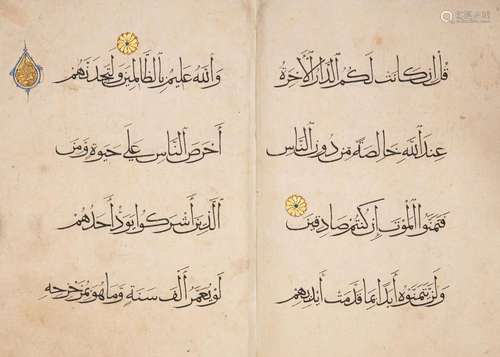 قُل إِن كَانَت لَكُم الدَّارُ الْآخِرَةُ
عِندَ اللَّهِ خَالِصَةً مِن دُونِ النَّاسِ
فَتَمَنَّوُا الْمَوْتَ إِن كُنتُم صَادِقِينَ
وَلَن يَتَمَنَّوْهُ أَبَدًا بِمَا قَدَّمَت أَيْدِيهِم
وَاللَّهُ عَلِيمٌ بِالظَّالِمِينَ وَلَتَجِدَنَّهُم
أَحْرَصَ النَّاسِ عَلَى حَيَوةٍ وَمِنَ
الَّذِينَ أَشْرَكُوا يَوَدُّ أَحَدُهُم
لَوْ يُعَمَّرُ أَلْفَ سَنَةٍ وَمَا هُوَ بِمُزَحْزِحِهِ